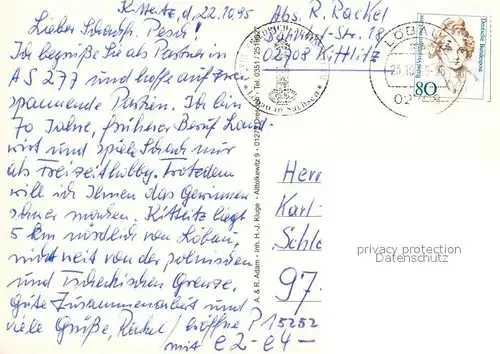 Kittlitz, d. 22.10.95
Lieber Schachfr. Pesch!
Ich begrüße Sie als Partner in
AS 277 und hoffe auf zwei
spannende Partien. Ich bin
70 Jahre, früherer Beruf Land-
wirt und spiele Schach nur
als Freizeithobby. Trotzdem
will ich Ihnen das Gewinnen
schwer machen. Kittlitz liegt
5 km nördlich von Löbau,
nicht weit von der polnischen
und Tschechischen Grenze.
Gute Zusammenarbeit und
viele Grüße, Rackel / eröffne P 15252
mit e2-e4-
Abs. R. Rackel
-Str. 18
02708 Kittlitz
Löbau in Sachsen
LÖBAU
Deutsche Bundespost
80
A. & R. Adam - Inh. H.-J. Kluge - Altlolkewitz 9 - 01279 Dresden - Tel. 0351 / 251
Herr
Karl
Schle
97.
privacy protection
DARABANTH